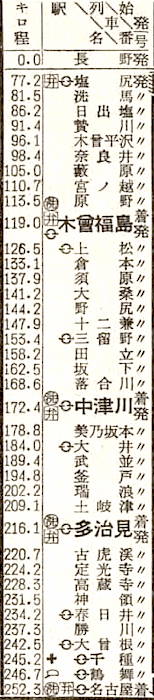 キロ程 駅名 列車番号 始発
0.0 長野 発
77.2 塩尻 〃
81.5 洗馬 〃
86.2 日出塩 〃
91.4 贄川 〃
96.1 木曾平沢 〃
98.4 奈良井 〃
105.0 藪原 〃
110.7 宮ノ越 〃
113.5 原野 〃
119.0 弁 木曾福島 着発
126.5 上松 〃
133.1 倉本 〃
137.9 須原 〃
141.2 大桑 〃
144.2 野尻 〃
147.9 十二兼 〃
153.4 三留野 〃
158.2 田立 〃
162.5 坂下 〃
168.6 落合川 〃
172.4 弁 中津川 着発
178.8 美乃坂本 〃
184.0 大井 〃
189.4 武並 〃
194.8 釜戸 〃
202.2 瑞浪 〃
209.1 土岐津 〃
216.1 弁 多治見 着発
220.7 古虎渓 〃
224.2 定光寺 〃
228.3 高蔵寺 〃
231.5 神領 〃
234.2 春日井 〃
237.3 勝川 〃
242.5 大曾根 〃
245.2 千種 〃
246.7 鶴舞 〃
252.3 弁 名古屋 着